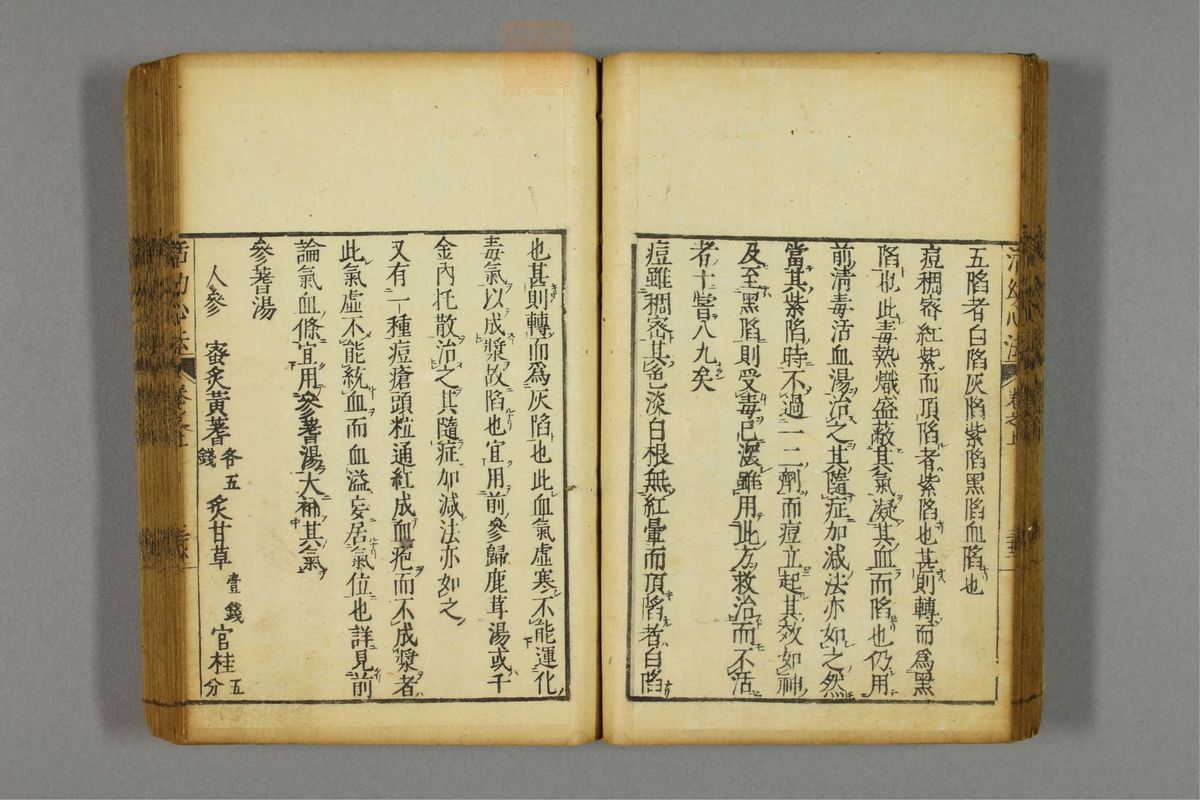 五陷者白陷灰陷紫陷黑陷血陷也
痘稠密紅紫而頂陷者紫陷也甚則轉而爲黑
陷也此毒熱熾盛蔽其氣凝其血而陷也仍用
前淸毒活血湯治之其隨症加減法亦如之然
當其紫陷時不過一二劑而痘立起其效如神
及至黑陷則受毒已深雖用此方救治而不活
者十嘗八九矣
痘雖稠密其色淡白根無紅暈而頂陷者白陷
也甚則轉而爲灰陷也此血氣虛寒不能運化
毒氣以成漿故陷也宜用前參歸鹿茸湯或千
金內托散治之其隨症加減法亦如之
又有一種痘瘡頭粒通紅成血疱而不成漿者
此氣虛不能統血而血溢妄居氣位也詳見前
論氣血條宜用參蓍湯大補其氣
參蓍湯
人參 蜜炙黃蓍各五錢 炙甘草壹錢 官桂五分
活幼心法 卷之上